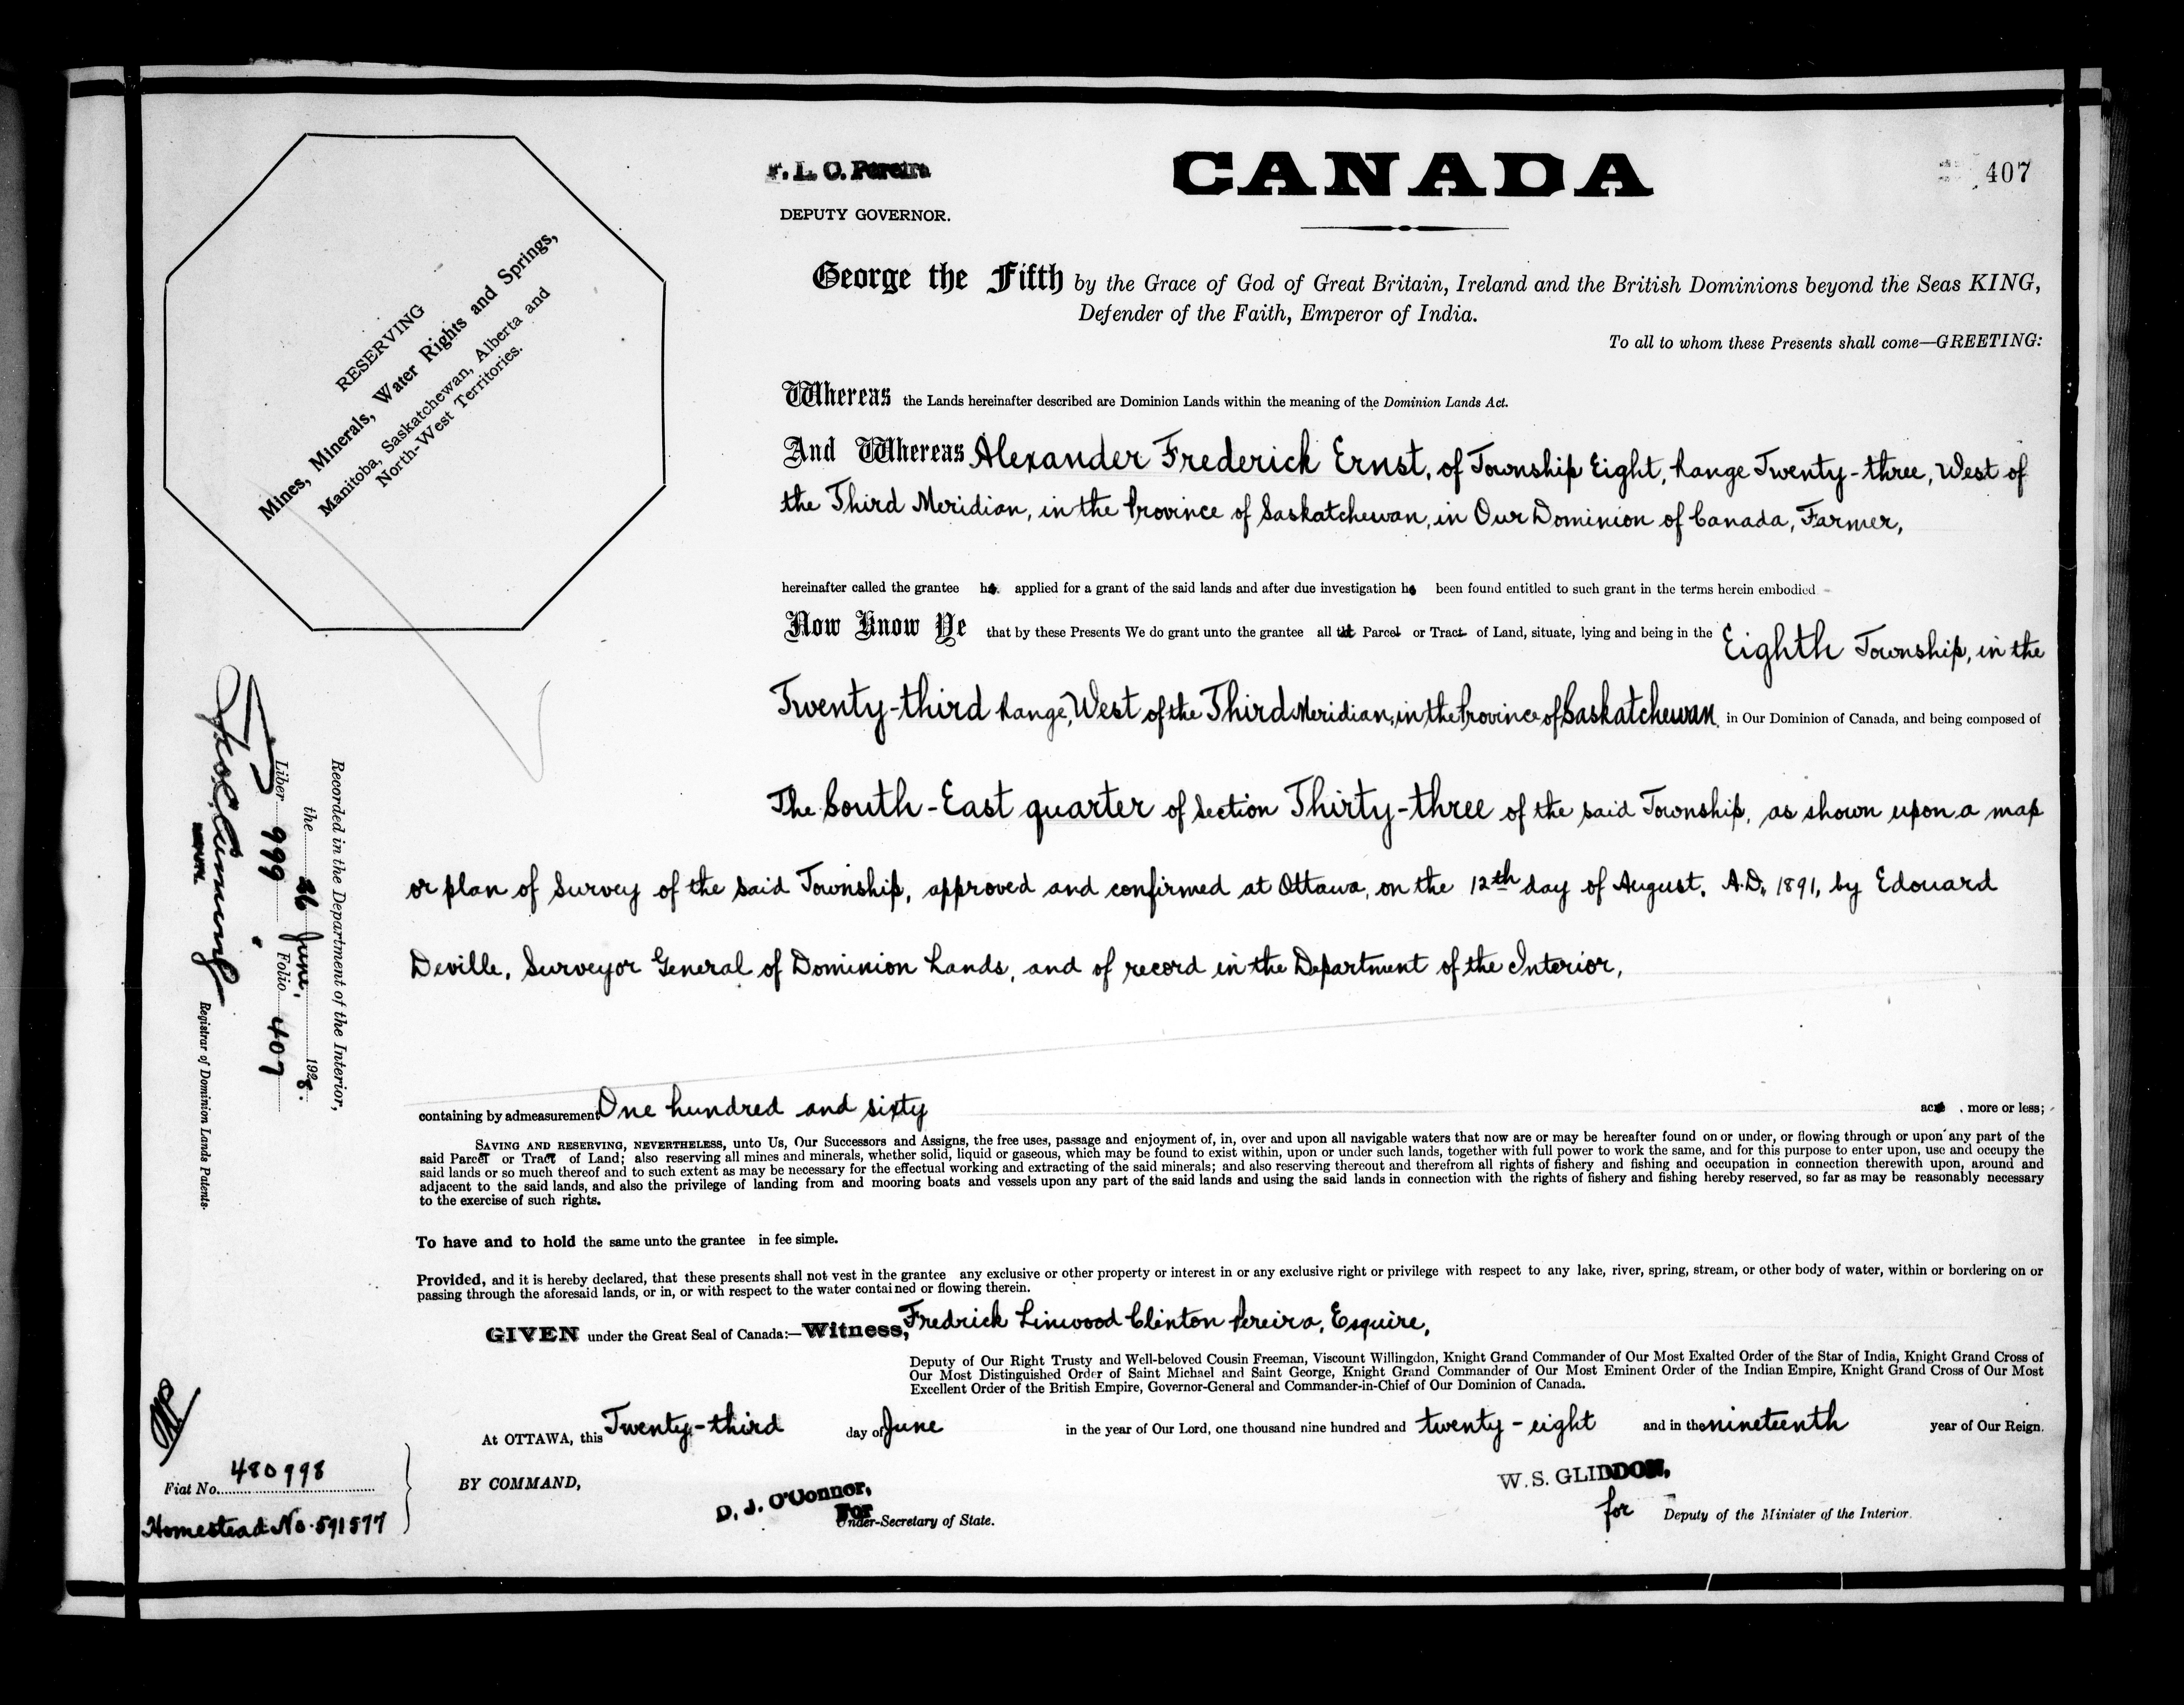 F. L. C. Pereira
DEPUTY GOVERNOR.
CANADA
407
RESERVING
Mines, Minerals, Water Rights and Springs,
Manitoba, Saskatchewan, Alberta and
North-West Territories.
George the Fifth by the Grace of God of Great Britain, Ireland and the British Dominions beyond the Seas KING,
Defender of the Faith, Emperor of India.
To all to whom these Presents shall come—GREETING:
Whereas the Lands hereinafter described are Dominion Lands within the meaning of the Dominion Lands Act.
And Whereas Alexander Frederick Ernst, of Township Eight, Range Twenty-three, West of
the Third Meridian, in the Province of Saskatchewan, in Our Dominion of Canada, Farmer,
hereinafter called the grantee has applied for a grant of the said lands and after due investigation has been found entitled to such grant in the terms herein embodied
Now Know Ye that by these Presents We do grant unto the grantee all that Parcel or Tract of Land, situate, lying and being in the Eighth Township, in the
Twenty-third Range, West of the Third Meridian, in the Province of Saskatchewan in Our Dominion of Canada, and being composed of
The South-East quarter of Section Thirty-three of the said Township, as shown upon a map
or plan of Survey of the said Township, approved and confirmed at Ottawa, on the 12th day of August, A.D. 1891, by Edouard
Deville, Surveyor General of Dominion Lands, and of record in the Department of the Interior,
containing by admeasurement One hundred and sixty acres, more or less;
SAVING AND RESERVING, NEVERTHELESS, unto Us, Our Successors and Assigns, the free uses, passage and enjoyment of, in, over and upon all navigable waters that now are or may be hereafter found on or under, or flowing through or upon any part of the
said Parcel or Tract of Land; also reserving all mines and minerals, whether solid, liquid or gaseous, which may be found to exist within, upon or under such lands, together with full power to work the same, and for this purpose to enter upon, use and occupy the
said lands or so much thereof and to such extent as may be necessary for the effectual working and extracting of the said minerals; and also reserving thereout and therefrom all rights of fishery and fishing and occupation in connection therewith upon, around and
adjacent to the said lands, and also the privilege of landing from and mooring boats and vessels upon any part of the said lands and using the said lands in connection with the rights of fishery and fishing hereby reserved, so far as may be reasonably necessary
to the exercise of such rights.
To have and to hold the same unto the grantee in fee simple.
Provided, and it is hereby declared, that these presents shall not vest in the grantee any exclusive or other property or interest in or any exclusive right or privilege with respect to any lake, river, spring, stream, or other body of water, within or bordering on or
passing through the aforesaid lands, or in, or with respect to the water contained or flowing therein.
GIVEN under the Great Seal of Canada:—Witness, Fredrick Linwood Clinton Pereira, Esquire,
Deputy of Our Right Trusty and Well-beloved Cousin Freeman, Viscount Willingdon, Knight Grand Commander of Our Most Exalted Order of the Star of India, Knight Grand Cross of
Our Most Distinguished Order of Saint Michael and Saint George, Knight Grand Commander of Our Most Eminent Order of the Indian Empire, Knight Grand Cross of Our Most
Excellent Order of the British Empire, Governor-General and Commander-in-Chief of Our Dominion of Canada.
At OTTAWA, this Twenty-third day of June in the year of Our Lord, one thousand nine hundred and twenty-eight and in the nineteenth year of Our Reign.
BY COMMAND,
D. J. O'Connor,
For
Under-Secretary of State.
W. S. GLIDDON,
for Deputy of the Minister of the Interior.
Recorded in the Department of the Interior,
the 26 June, 1928.
Liber 999 Folio 407
Registrar of Dominion Lands Patents.
Fiat No. 480998
Homestead No. 591577